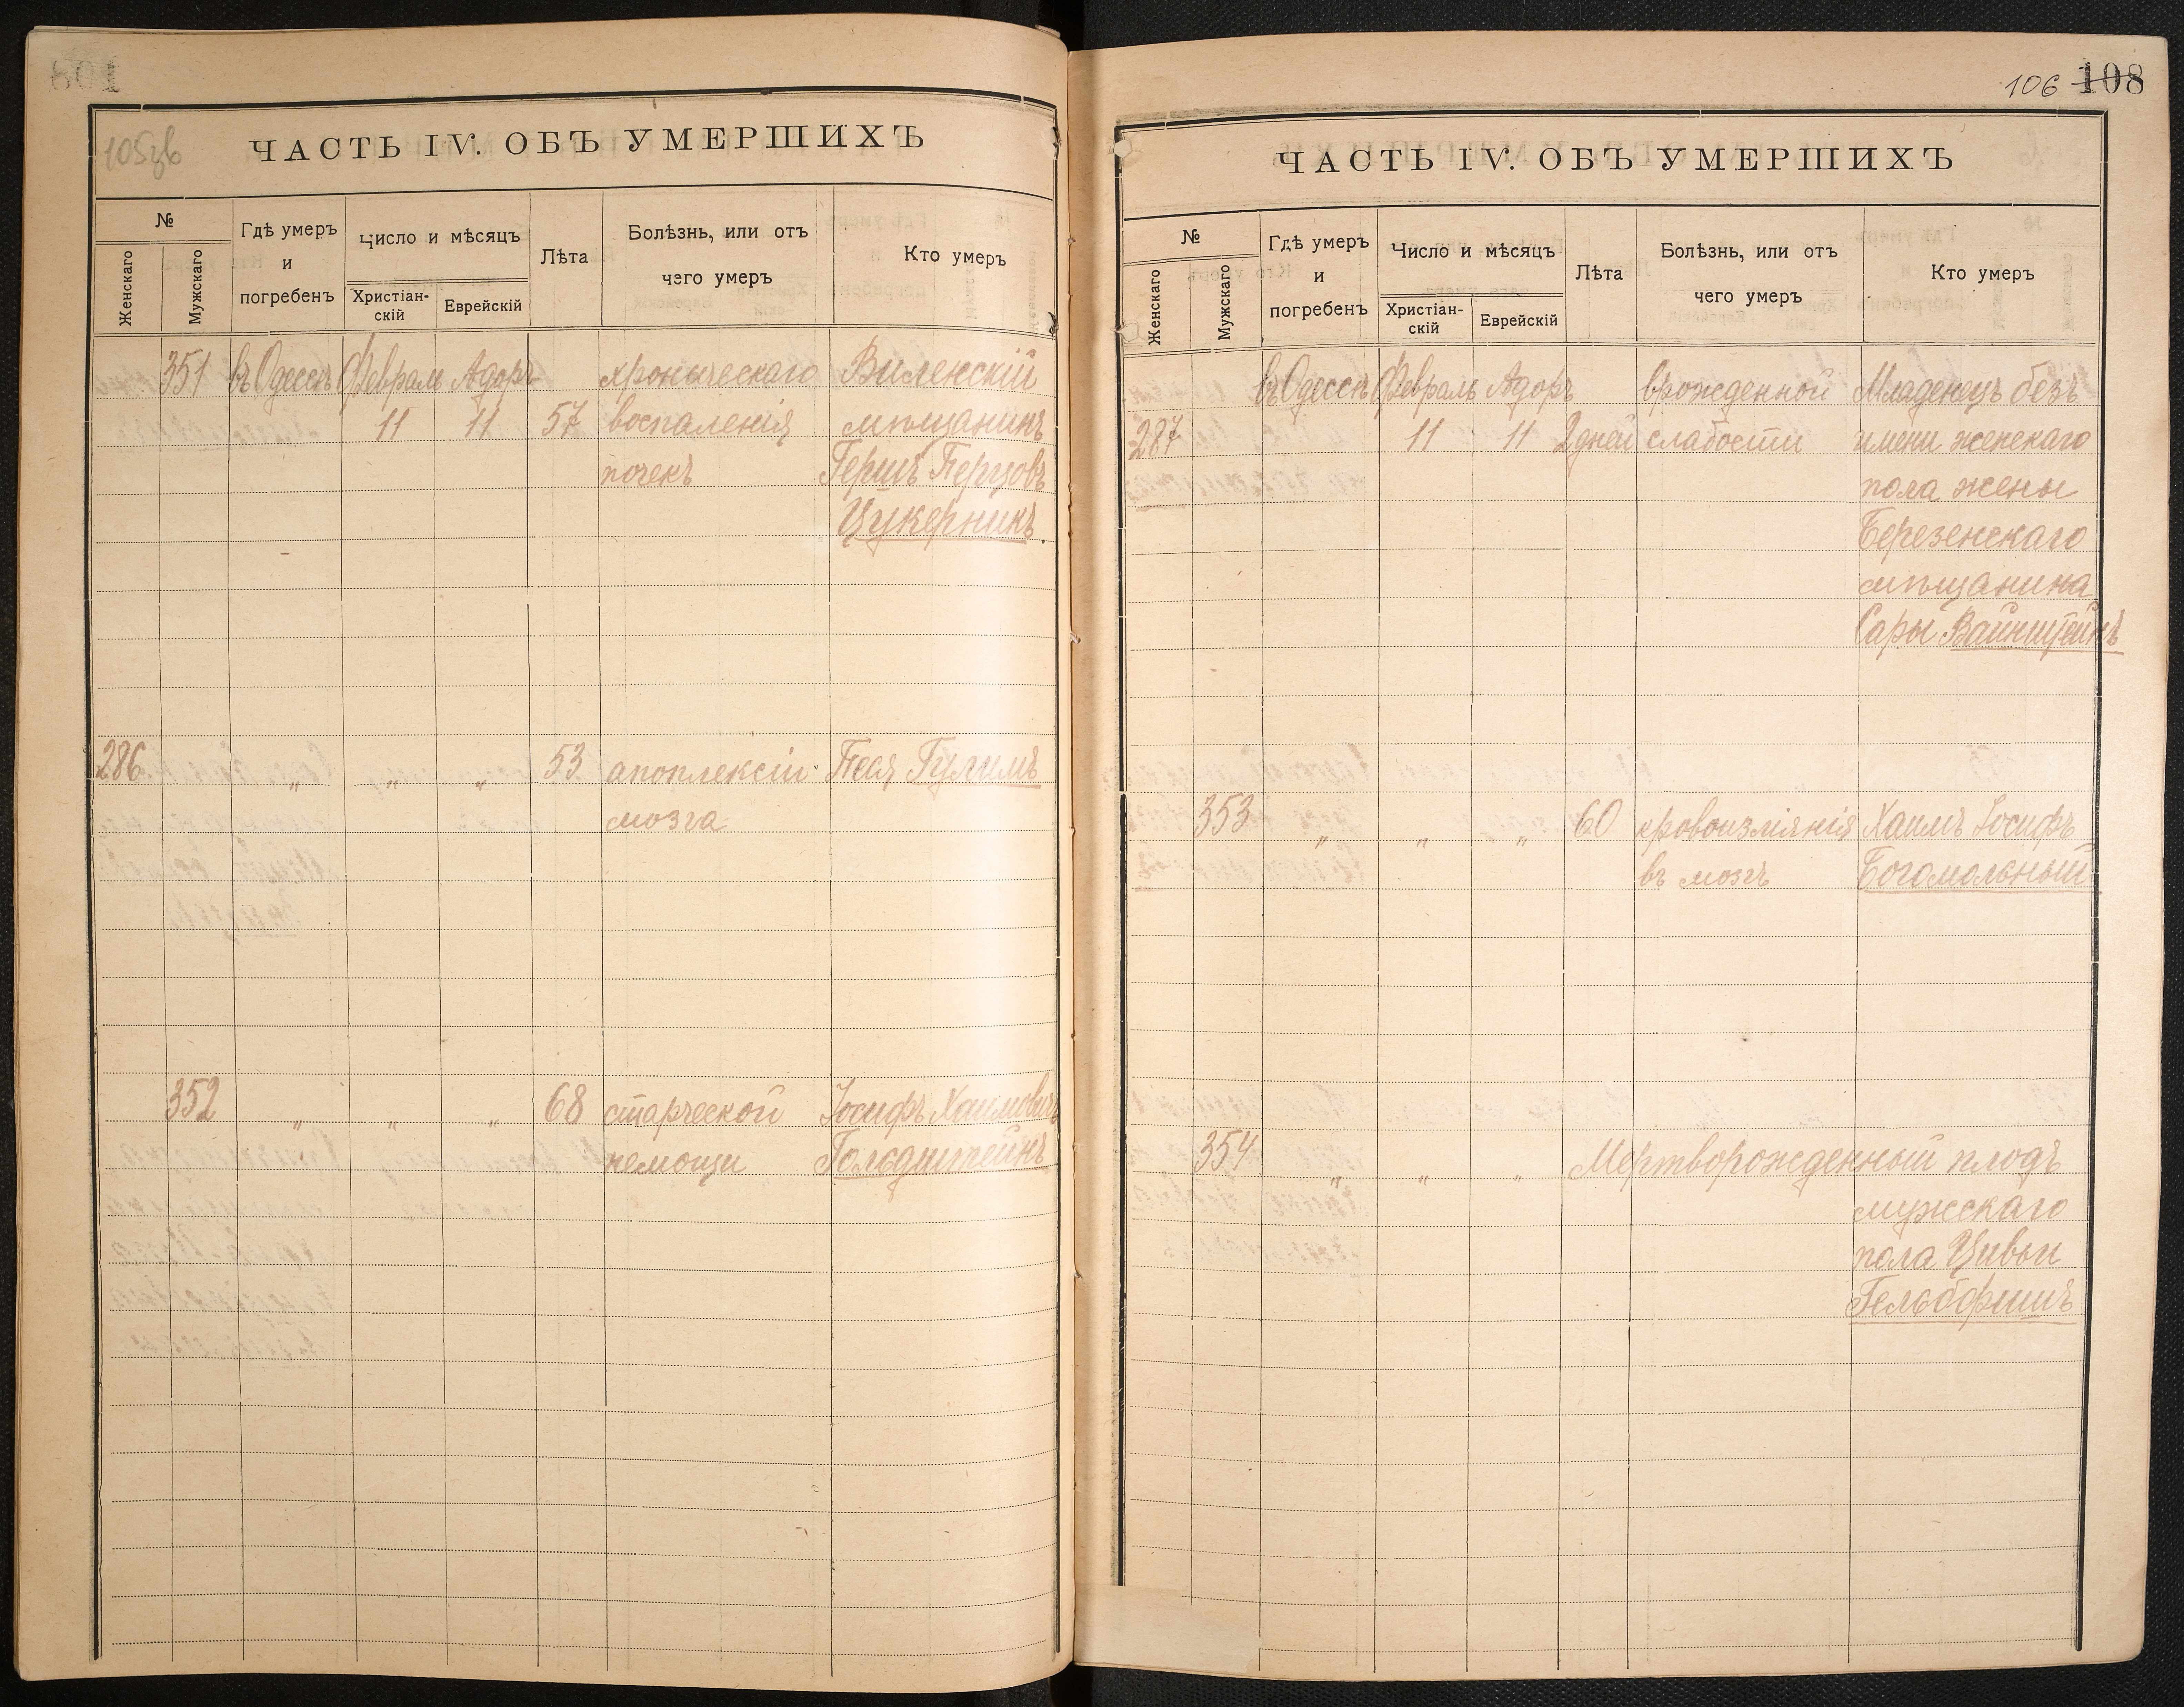 105зв
ЧАСТЬ IV. ОБЪ УМЕРШИХЪ
№
Женскаго
Мужскаго
Гдѣ умеръ
и
погребенъ
Число и мѣсяцъ
Христіан-
скій
Еврейскій
Лѣта
Болѣзнь, или отъ
чего умеръ
Кто умеръ
351 въ Одессѣ Февраль Адоръ хроническаго Виленскій
11 11 57 воспаленія мѣщанинъ
почекъ Гершъ Перцовъ
Цукерникъ.
286 " " " 53 апоплексіи Песя Гулимъ
мозга
352 " " " 68 старческой Іосифъ Хаимовичъ
немощи Гольдштейнъ
106 108
ЧАСТЬ IV. ОБЪ УМЕРШИХЪ
№
Женскаго
Мужскаго
Гдѣ умеръ
и
погребенъ
Число и мѣсяцъ
Христіан-
скій
Еврейскій
Лѣта
Болѣзнь, или отъ
чего умеръ
Кто умеръ
въ Одессѣ Февраль Адоръ врожденной Младенецъ безъ
287 11 11 2 дней слабости имени женскаго
пола жены
Березенскаго
мѣщанина
Сары Вайнштейнъ
353 " " " 60 кровоизліянія Хаимъ Іосифъ
въ мозгъ Богомольный
354 " " " Мертворожденный плодъ
мужскаго
пола Цивьи
Гельбфишъ